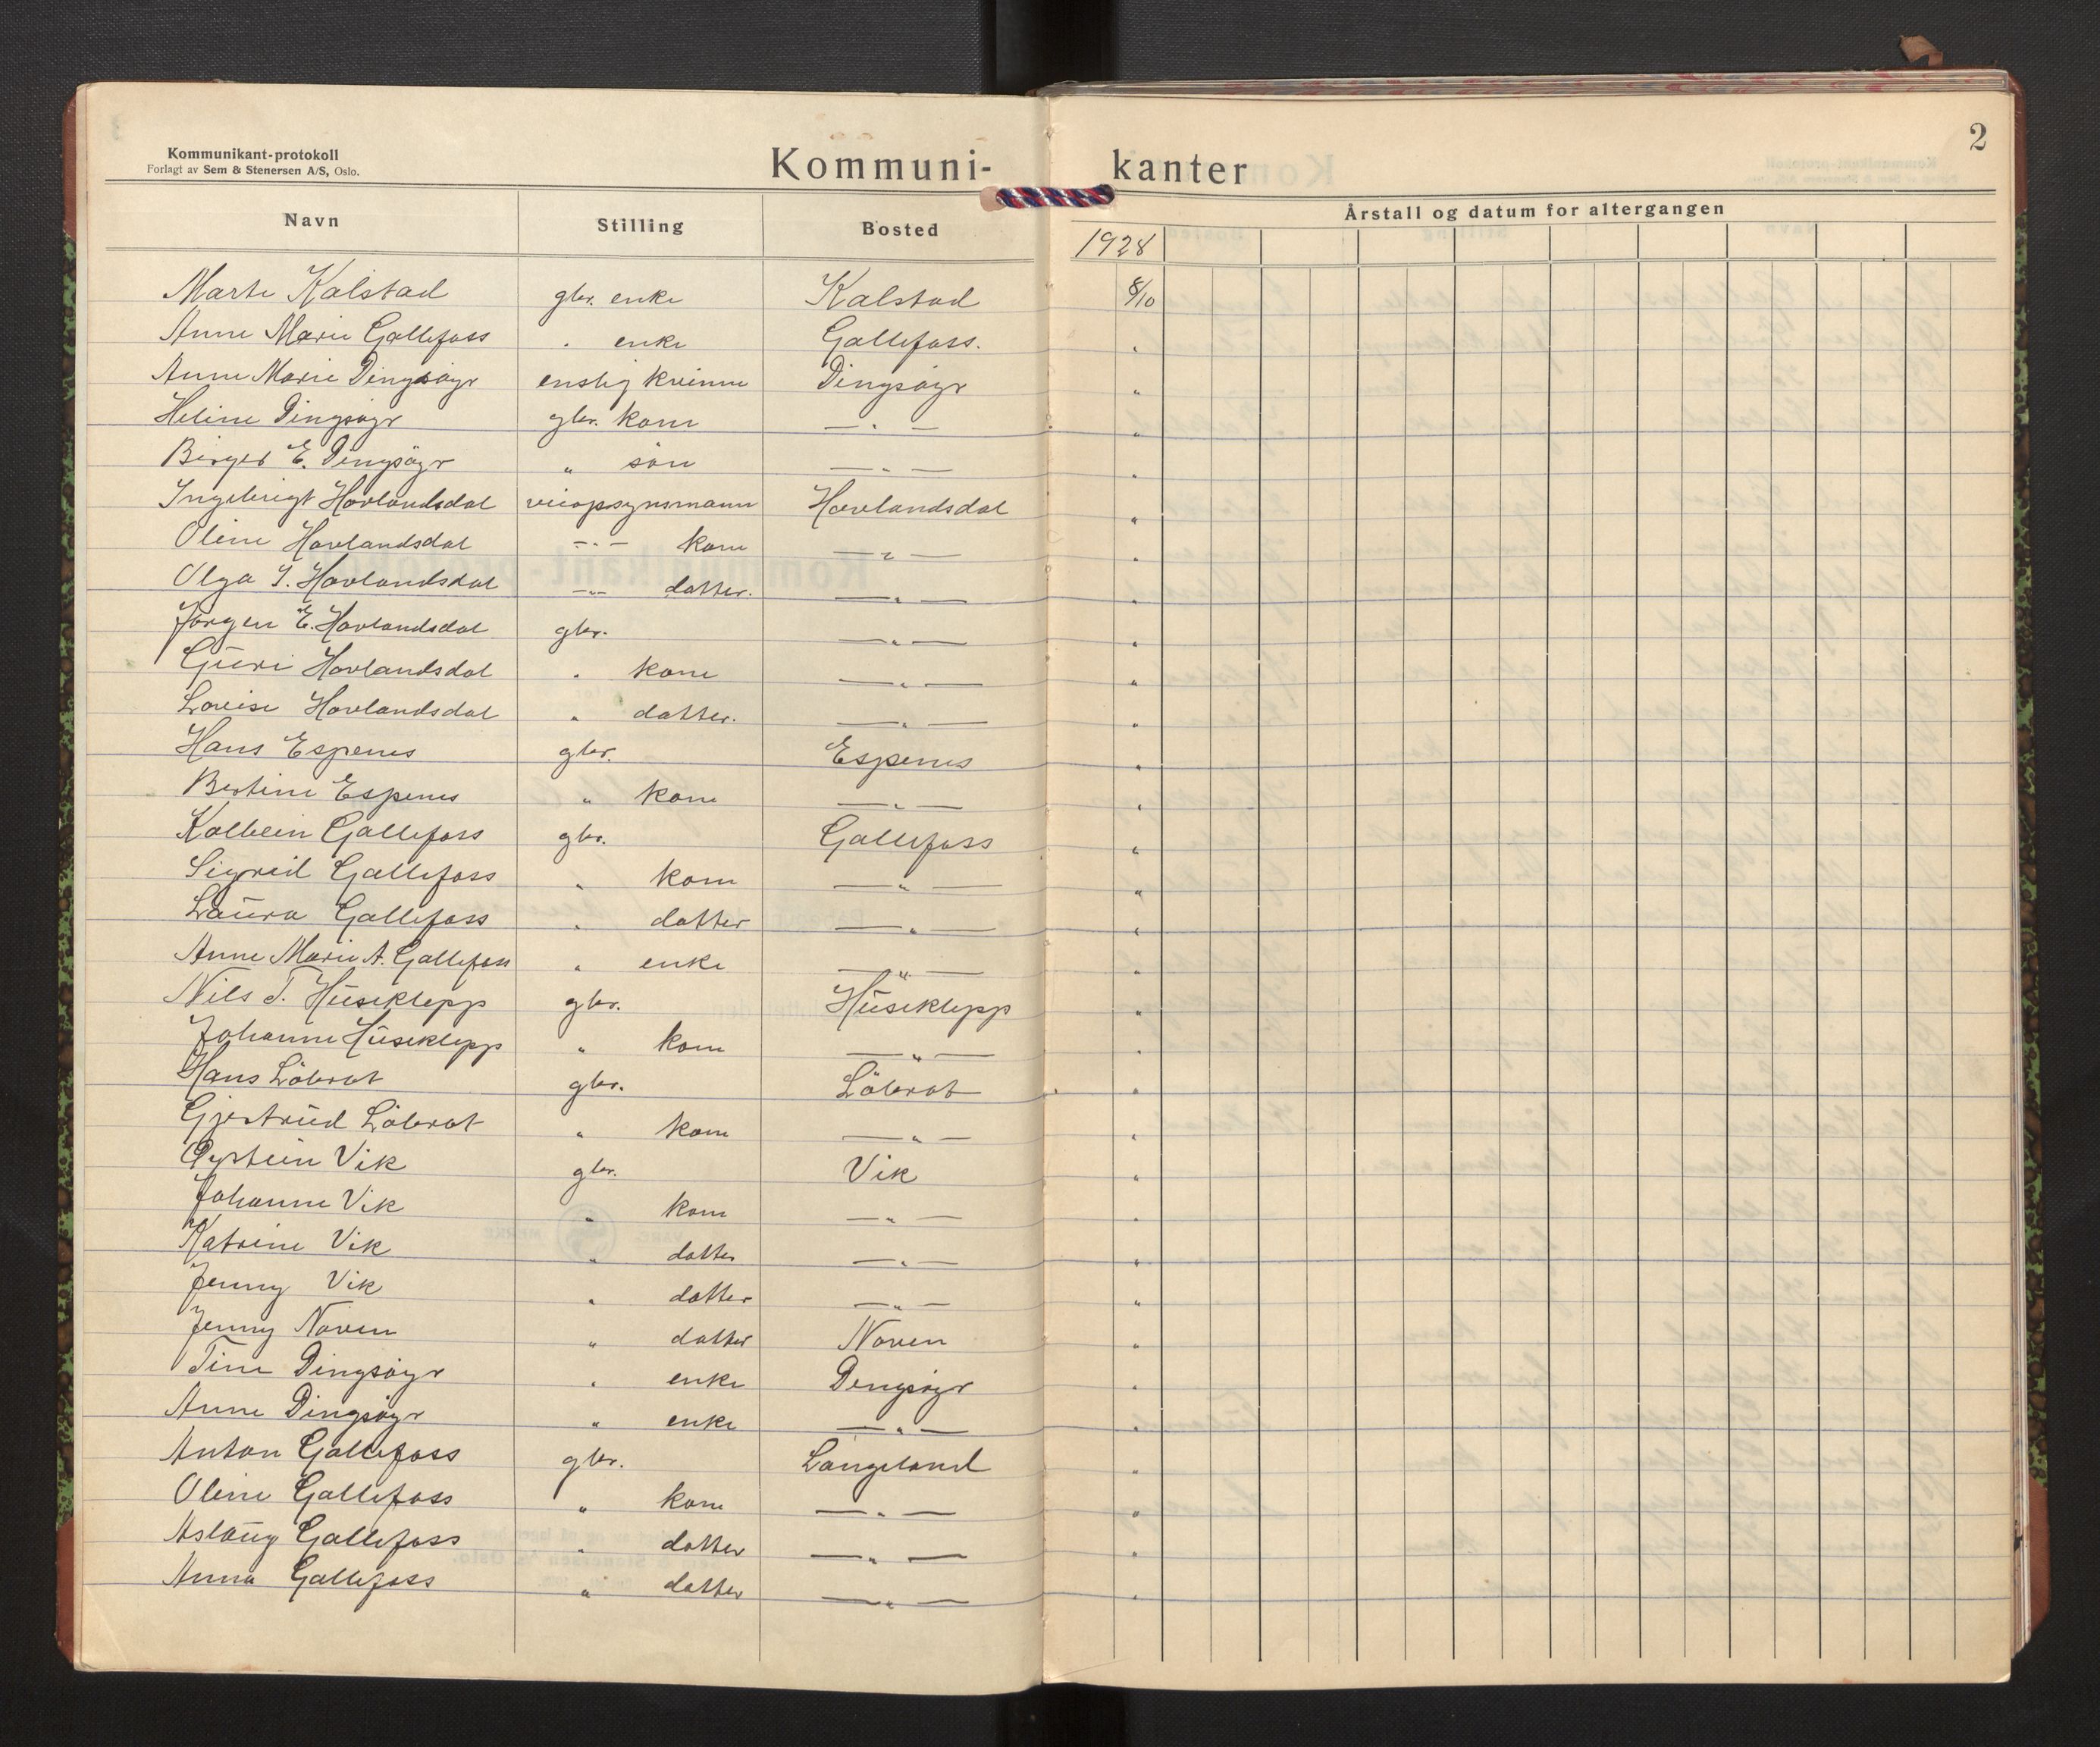 2
Kommunikant-protokoll
Forlagt av Sem & Stenersen A/S, Oslo.
Kommuni- kanter
Navn Stilling Bosted Årstall og datum for altergangen
1928
Marte Kalstad gbr. enke Kalstad 8/10
Anne Marie Gallefoss " enke Gallefoss. "
Anne Marie Dingsöyr enslig kvinne Dingsöyr "
Heline Dingsöyr gbr. kone — " — "
Birger E. Dingsöyr " sön — " — "
Ingebrigt Hovlandsdal veiopsynsmann Hovlandsdal "
Oline Hovlandsdal — " — kone — " — "
Olga I. Hovlandsdal — " — datter. — " — "
Jörgen E. Hovlandsdal gbr. — " — "
Guri Hovlandsdal " kone — " — "
Lovise Hovlandsdal " datter. — " — "
Hans Espenes gbr. Espenes "
Bertine Espenes " kone — " — "
Kolbein Gallefoss gbr. Gallefoss "
Sigreid Gallefoss " kone — " — "
Laura Gallefoss " datter — " — "
Anne Marie A. Gallefoss " enke — " — "
Nils T. Huseklepp gbr. Huseklepp "
Johanne Huseklepp " kone — " — "
Hans Löbrot gbr. Löbrot "
Gjertrud Löbrot " kone — " — "
Oystein Vik gbr. Vik "
Johanne Vik " kone — " — "
Katrine Vik " datter — " — "
Jenny Vik " datter — " — "
Jenny Noven " datter Noven "
Tine Dingsöyr " enke Dingsöyr "
Anne Dingsöyr " enke — " — "
Anton Gallefoss gbr. Langeland "
Oline Gallefoss " kone — " — "
Aslaug Gallefoss " datter — " — "
Anna Gallefoss " datter — " — "